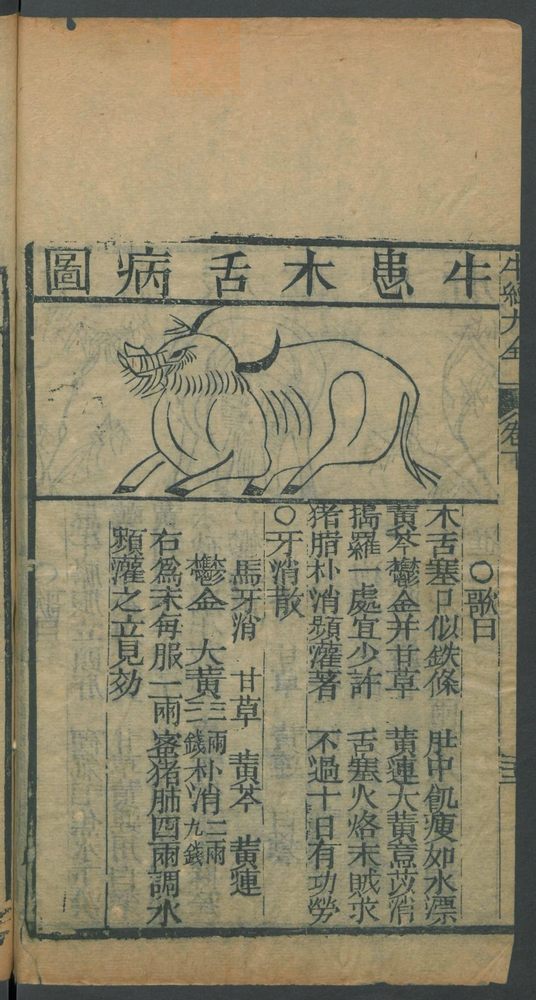 牛患木舌病圖
牛經大全
卷下
○歌曰
木舌塞口似鉄條 肚中飢瘦如水漂
黄芩鬱金并甘草 黄連大黄意苡消
搗羅一處宜少許 舌塞火烙未賊求
猪脂朴消頻灌著 不過十日有功勞
○牙消散
馬牙消 甘草 黄芩 黄連
鬱金 大黄三兩三錢朴消二兩九錢
右爲末每服二兩 蜜猪肺四兩調水
頻灌之立見効